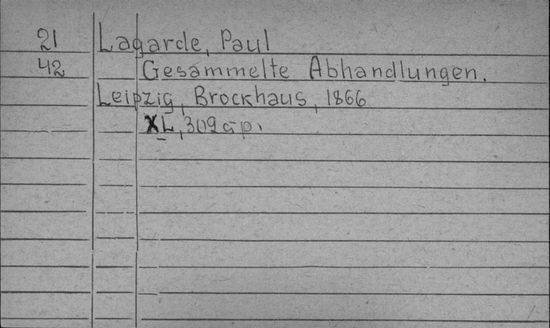 21 Lagarde, Paul
42 Gesammelte Abhandlungen.
Leipzig, Brockhaus, 1866
XL, 309 c p.